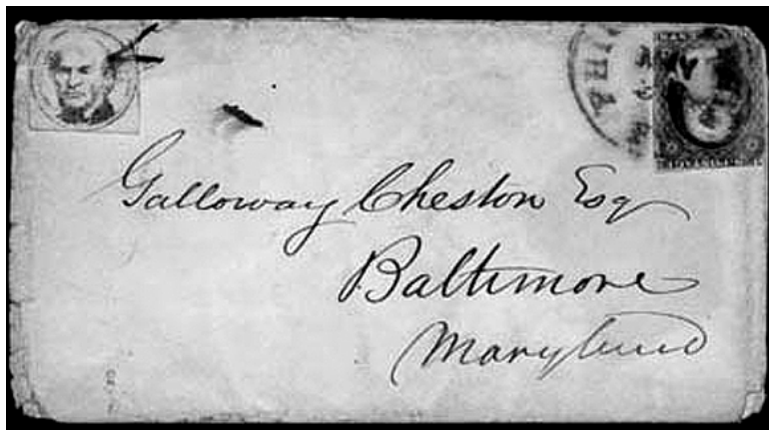 Galloway Cheston Esq
Baltimore
Maryland